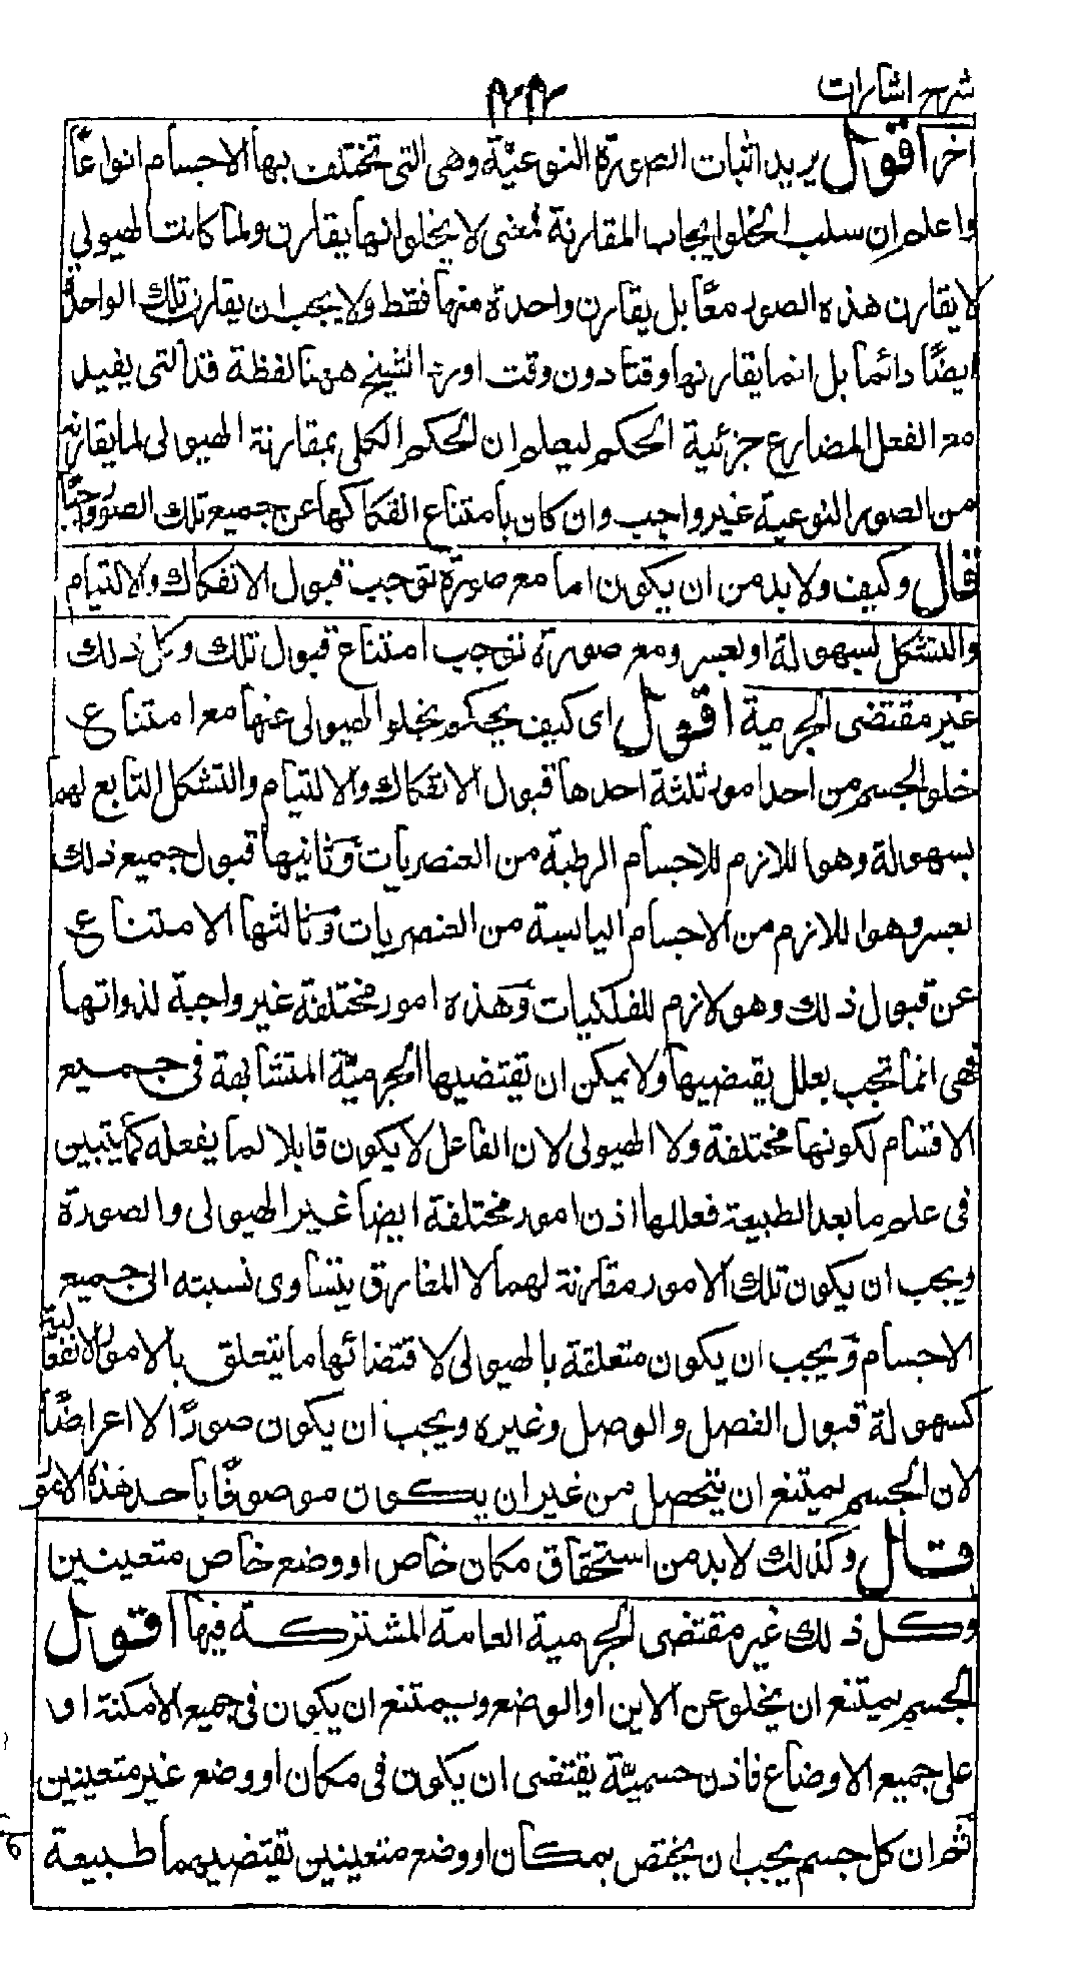 شرح اشارات
۲۳۲
اخر اقول يريد اثبات الصورة النوعيّة وهى التى تختلف بها الاجسام انواعًا
واعلم ان سلب الخلو ايجاب المقارنة فمعنى لا يخلو انها يقارن ولما كانت الهيولى
لا يقارن هذه الصور معًا بل يقارن واحدة منها فقط ولا يجب ان يقارن تلك الواحدة
ايضًا دائما بل انما يقارنها وقتا دون وقت اورد الشيخ ههنا لفظة قد التى يفيد
مع الفعل المضارع جزئية الحكم ليعلم ان الحكم الكلى بمقارنة الهيولى لما يقارنه
من الصور النوعية غير واجب وان كان بامتناع انفكاكها عن جميع تلك الصور واجبًا
قال وكيف ولا بد من ان يكون اما مع صورة توجب قبول الانفكاك والالتيام
والتشكل لسهولة او لعسر ومع صورة توجب امتناع قبول تلك وكل ذلك
غير مقتضى الجرمية اقول اى كيف يحكم بخلو الهيولى عنها مع امتناع
خلو الجسم من احد امور ثلثة احدها قبول الانفكاك والالتيام والتشكل التابع لهما
بسهولة وهو اللازم للاجسام الرطبة من العنصريات وثانيها قبول جميع ذلك
بعسر وهو اللازم من الاجسام اليابسة من العنصريات وثالثها الامتناع
عن قبول ذلك وهو لازم للفلكيات وهذه امور مختلفة غير واجبة لذواتها
فهى انما تجب بعلل يقتضيها ولا يمكن ان تقتضيها الجرميّة المتشابهة فى جميع
الاقسام لكونها مختلفة ولا الهيولى لان الفاعل لا يكون قابلا لما يفعله كما يتبين
فى علم ما بعد الطبيعة فعللها اذن امور مختلفة ايضا غير الهيولى والصورة
ويجب ان يكون تلك الامور مقارنة لهما لا المفارق يتساوى نسبته الى جميع
الاجسام ويجب ان يكون متعلقة بالهيولى لاقتضائها ما يتعلق بالامور الانفعالية
كسهولة قبول الفصل والوصل وغيره ويجب ان يكون صورًا لا اعراضًا
لان الجسم يمتنع ان يتحصل من غير ان يكون موصوفًا باحد هذه الامور
قال وكذلك لا بد من استحقاق مكان خاص او وضع خاص متعينين
وكل ذلك غير مقتضى الجرمية العامة المشتركة فيها اقول
الجسم يمتنع ان يخلو عن الاين او الوضع ويمتنع ان يكون فى جميع الامكنة او
على جميع الاوضاع فاذن جسميّة يقتضى ان يكون فى مكان او وضع غير متعينين
ثم ان كل جسم يجب ان يختص بمكان او وضع متعينين تقتضيهما طبيعة